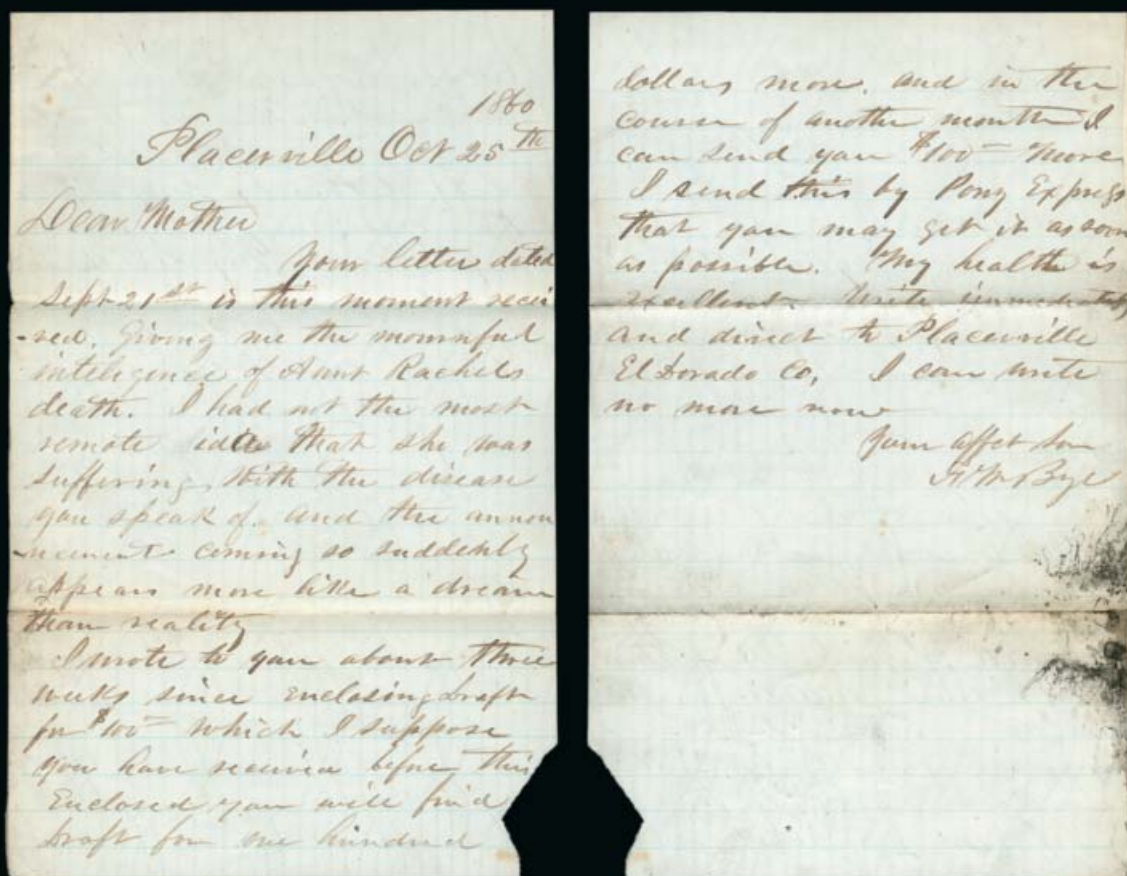 1860
Placerville Oct 25th
Dear Mother
Your letter dated
Sept 21st is this moment recei
-ved, Giving me the mournful
inteligence of Aunt Rachels
death. I had not the most
remote idea that she was
suffering with the disease
you speak of. and the annou
-ncement coming so suddenly
appears more like a dream
than reality
I wrote to you about three
weeks since enclosing draft
for $100 which I suppose
you have received before this
Enclosed you will find
draft for one hundred
dollars more. and in the
course of another month I
can send you $100 more
I send this by Pony Express
that you may get it as soon
as possible. My health is
excellent. Write immediately
and direct to Placerville
El Dorado Co, I can write
no more now
Your affet Son
Bye